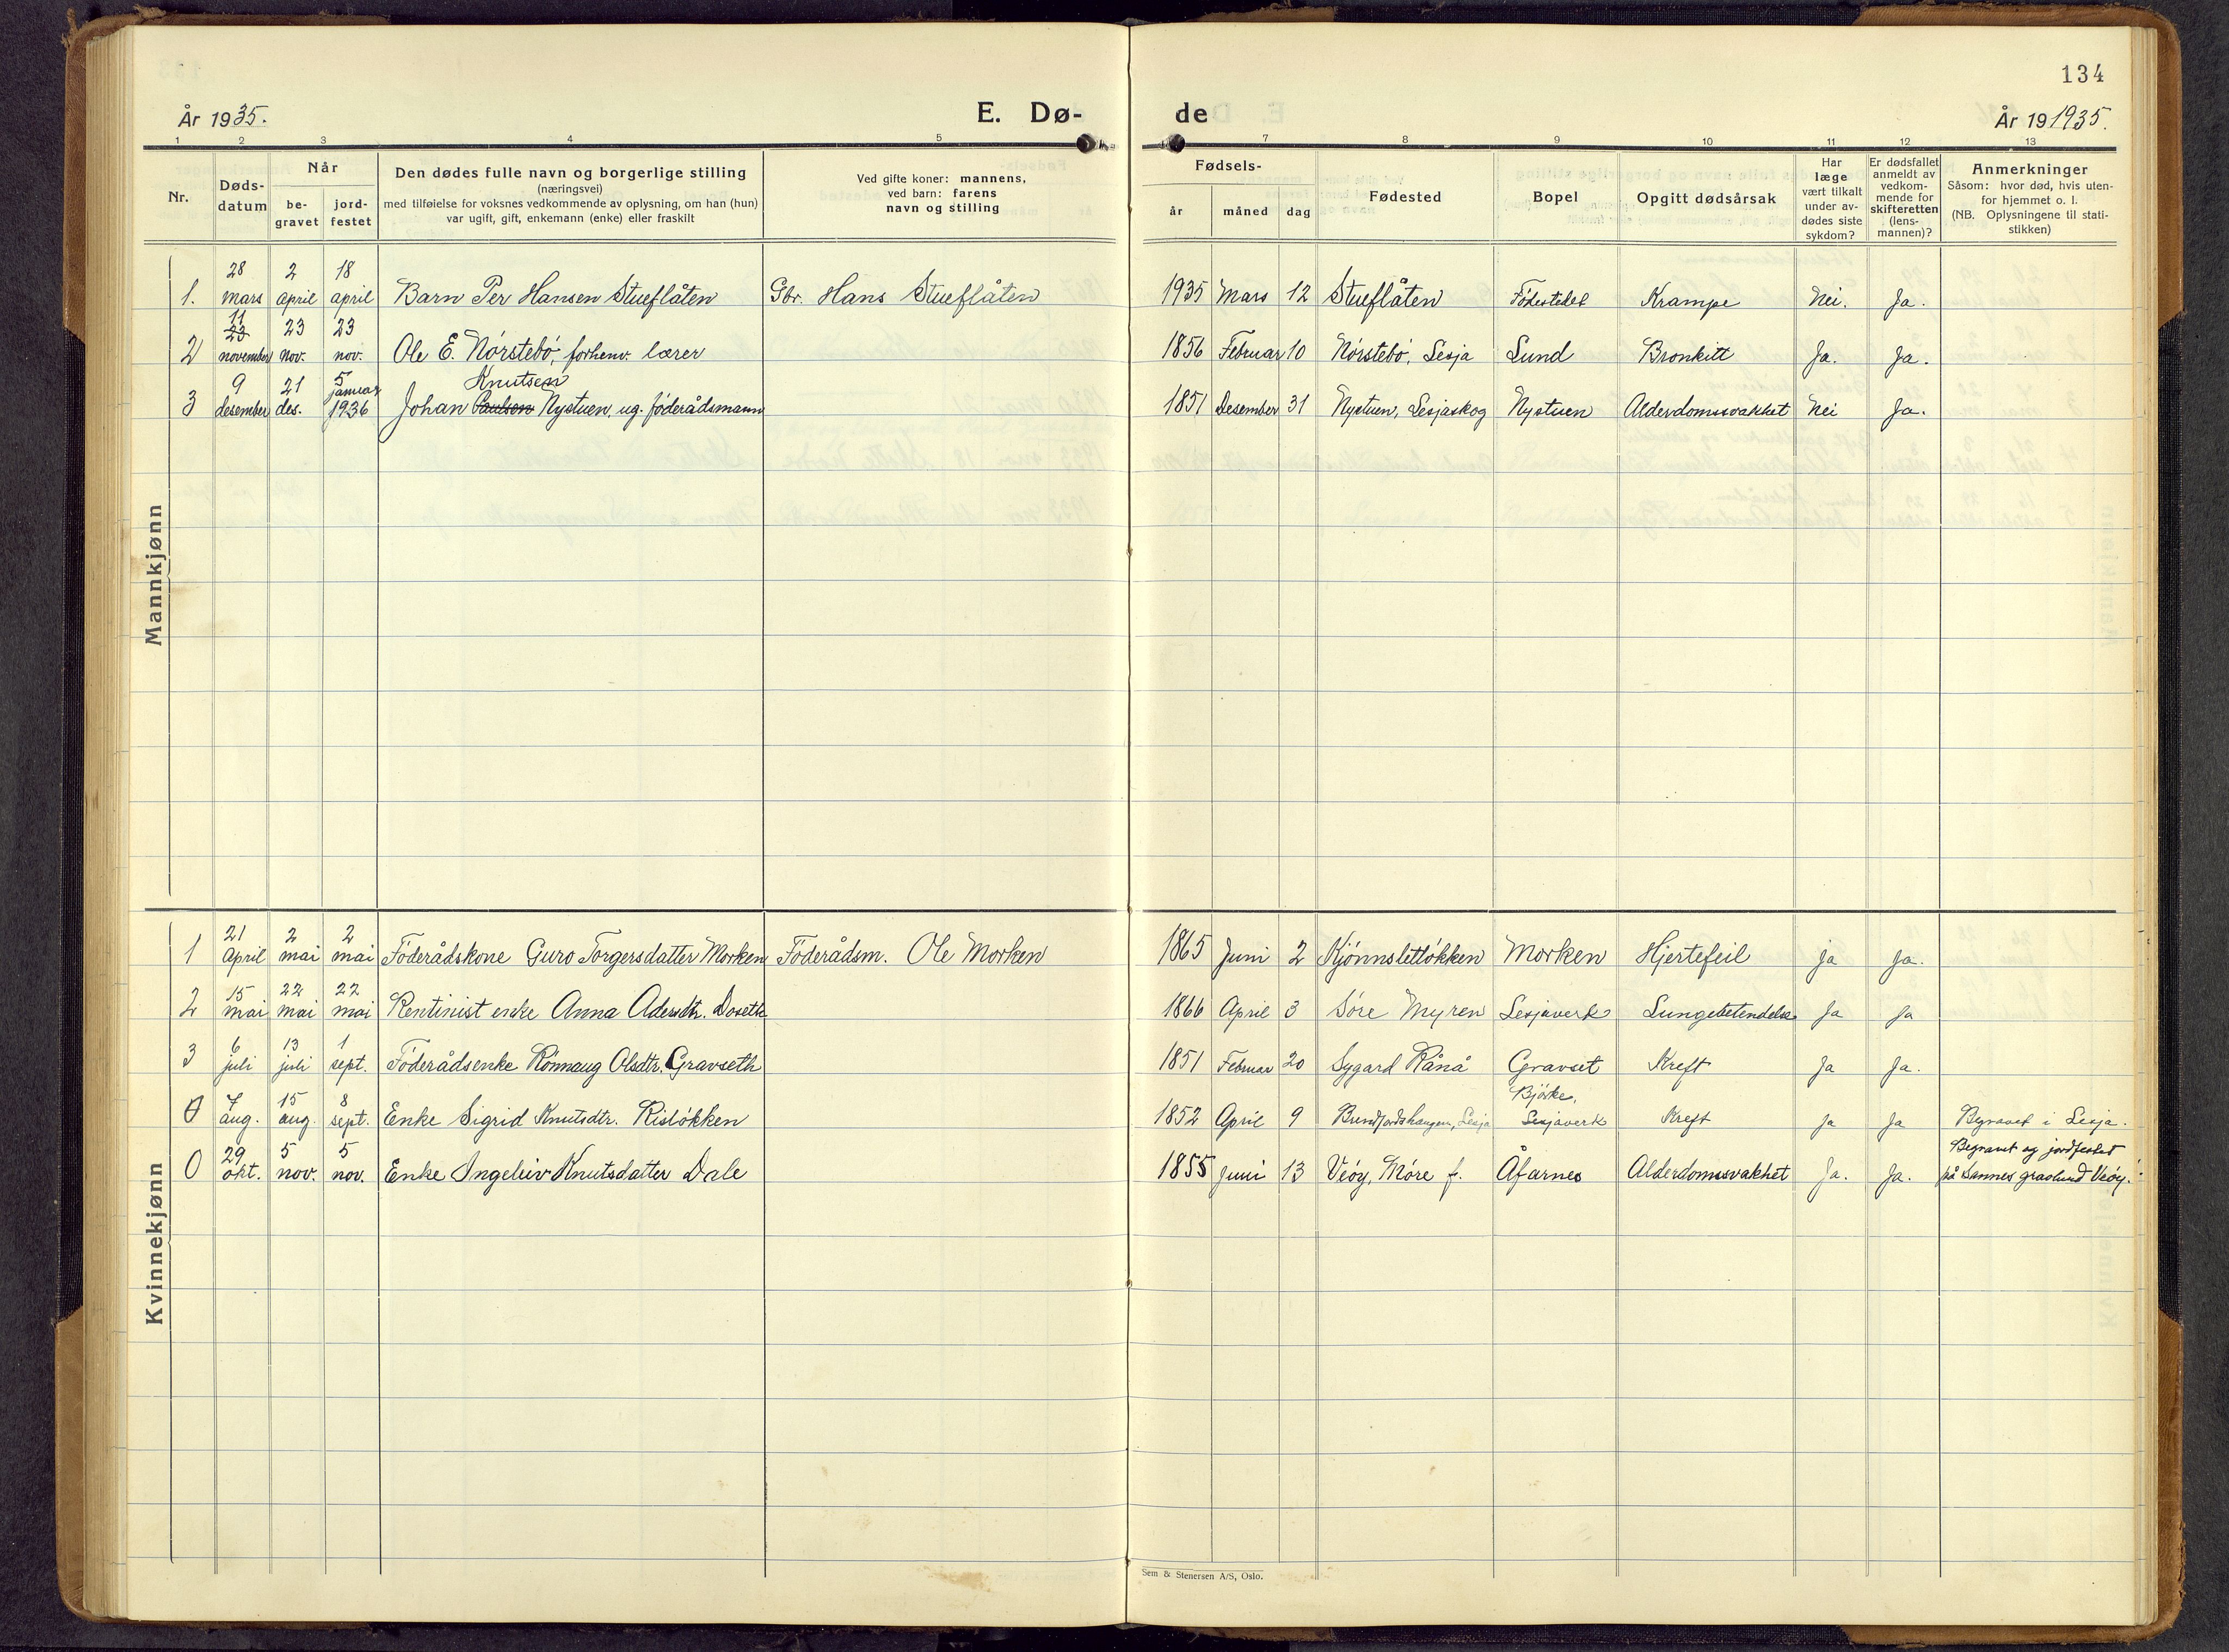 134
År 1935.
E. Dø-
de
År 19 1935.
1 2 3 4 5 7 8 9 10 11 12 13
Nr.
Døds-
datum
Når
be-
gravet
jord-
festet
Den dødes fulle navn og borgerlige stilling
(næringsvei)
med tilføielse for voksnes vedkommende av oplysning, om han (hun)
var ugift, gift, enkemann (enke) eller fraskilt
Ved gifte koner: mannens,
ved barn: farens
navn og stilling
Fødsels-
år måned dag
Fødested
Bopel
Opgitt dødsårsak
Har
læge
vært tilkalt
under av-
dødes siste
sykdom?
Er dødsfallet
anmeldt av
vedkom-
mende for
skifteretten
(lens-
mannen)?
Anmerkninger
Såsom: hvor død, hvis uten-
for hjemmet o. l.
(NB. Oplysningene til stati-
stikken)
Mannkjønn
28 2 18
1. mars april april Barn Per Hansen Stueflåten Gbr. Hans Stueflåten 1935 Mars 12 Stueflåten Fødestedet Krampe Nei. Ja.
11
23 23 23
2 november nov. nov. Ole E. Nörstebö, forhenv. lærer 1856 Februar 10 Nörstebö, Lesja Lund Bronkitt Ja. Ja.
9 21 5 januar Knutsen
3 desember des. 1936 Johan Paulsen Nystuen, ug. föderådsmann 1851 Desember 31 Nystuen, Lesjaskog Nystuen Alderdomssvakhet Nei Ja.
Kvinnekjønn
21 2 2
1 April mai mai Föderådskone Guro Torgersdatter Morken Föderådsm. Ole Morken 1865 Juni 2 Kjönnsletlökken Morken Hjertefeil ja ja.
15 22 22
2 mai mai mai Rentinist enke Anna Adersdtr. Doseth 1866 April 3 Söre Myren Lesjaverk Lungebetendelse Ja Ja
6 13 1
3 juli juli sept. Föderådsenke Rönnaug Olsdtr. Gravseth 1851 Februar 20 Sygard Rånå Gravset Kreft Ja Ja.
7 15 8 Björke,
0 aug. aug. sept. Enke Sigrid Knutsdtr. Rislökken 1852 April 9 Lesja Lesjaverk Kreft ja ja Begravet i Lesja.
29 5 5 Begravet og jordfestet
0 okt. nov. nov. Enke Ingeleiv Knutsdatter Dale 1855 Juni 13 Veöy, Möre f. Åfarnes Alderdomssvakhet Ja. Ja. på Sannes gravlund Veöy.
Sem & Stenersen A/S, Oslo.